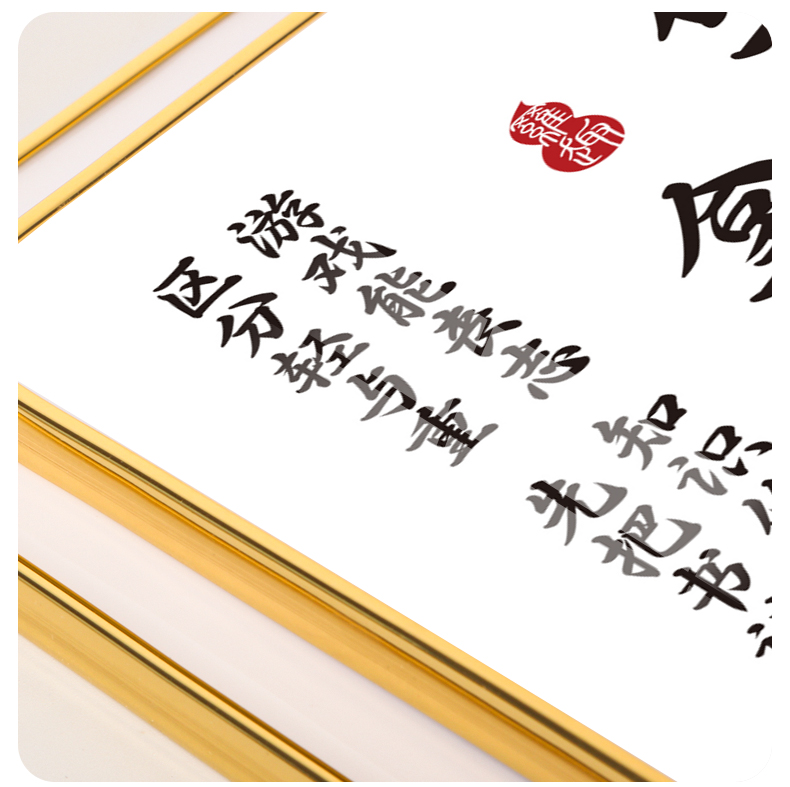 游戏能丧志 知识
区分轻与重 先把书